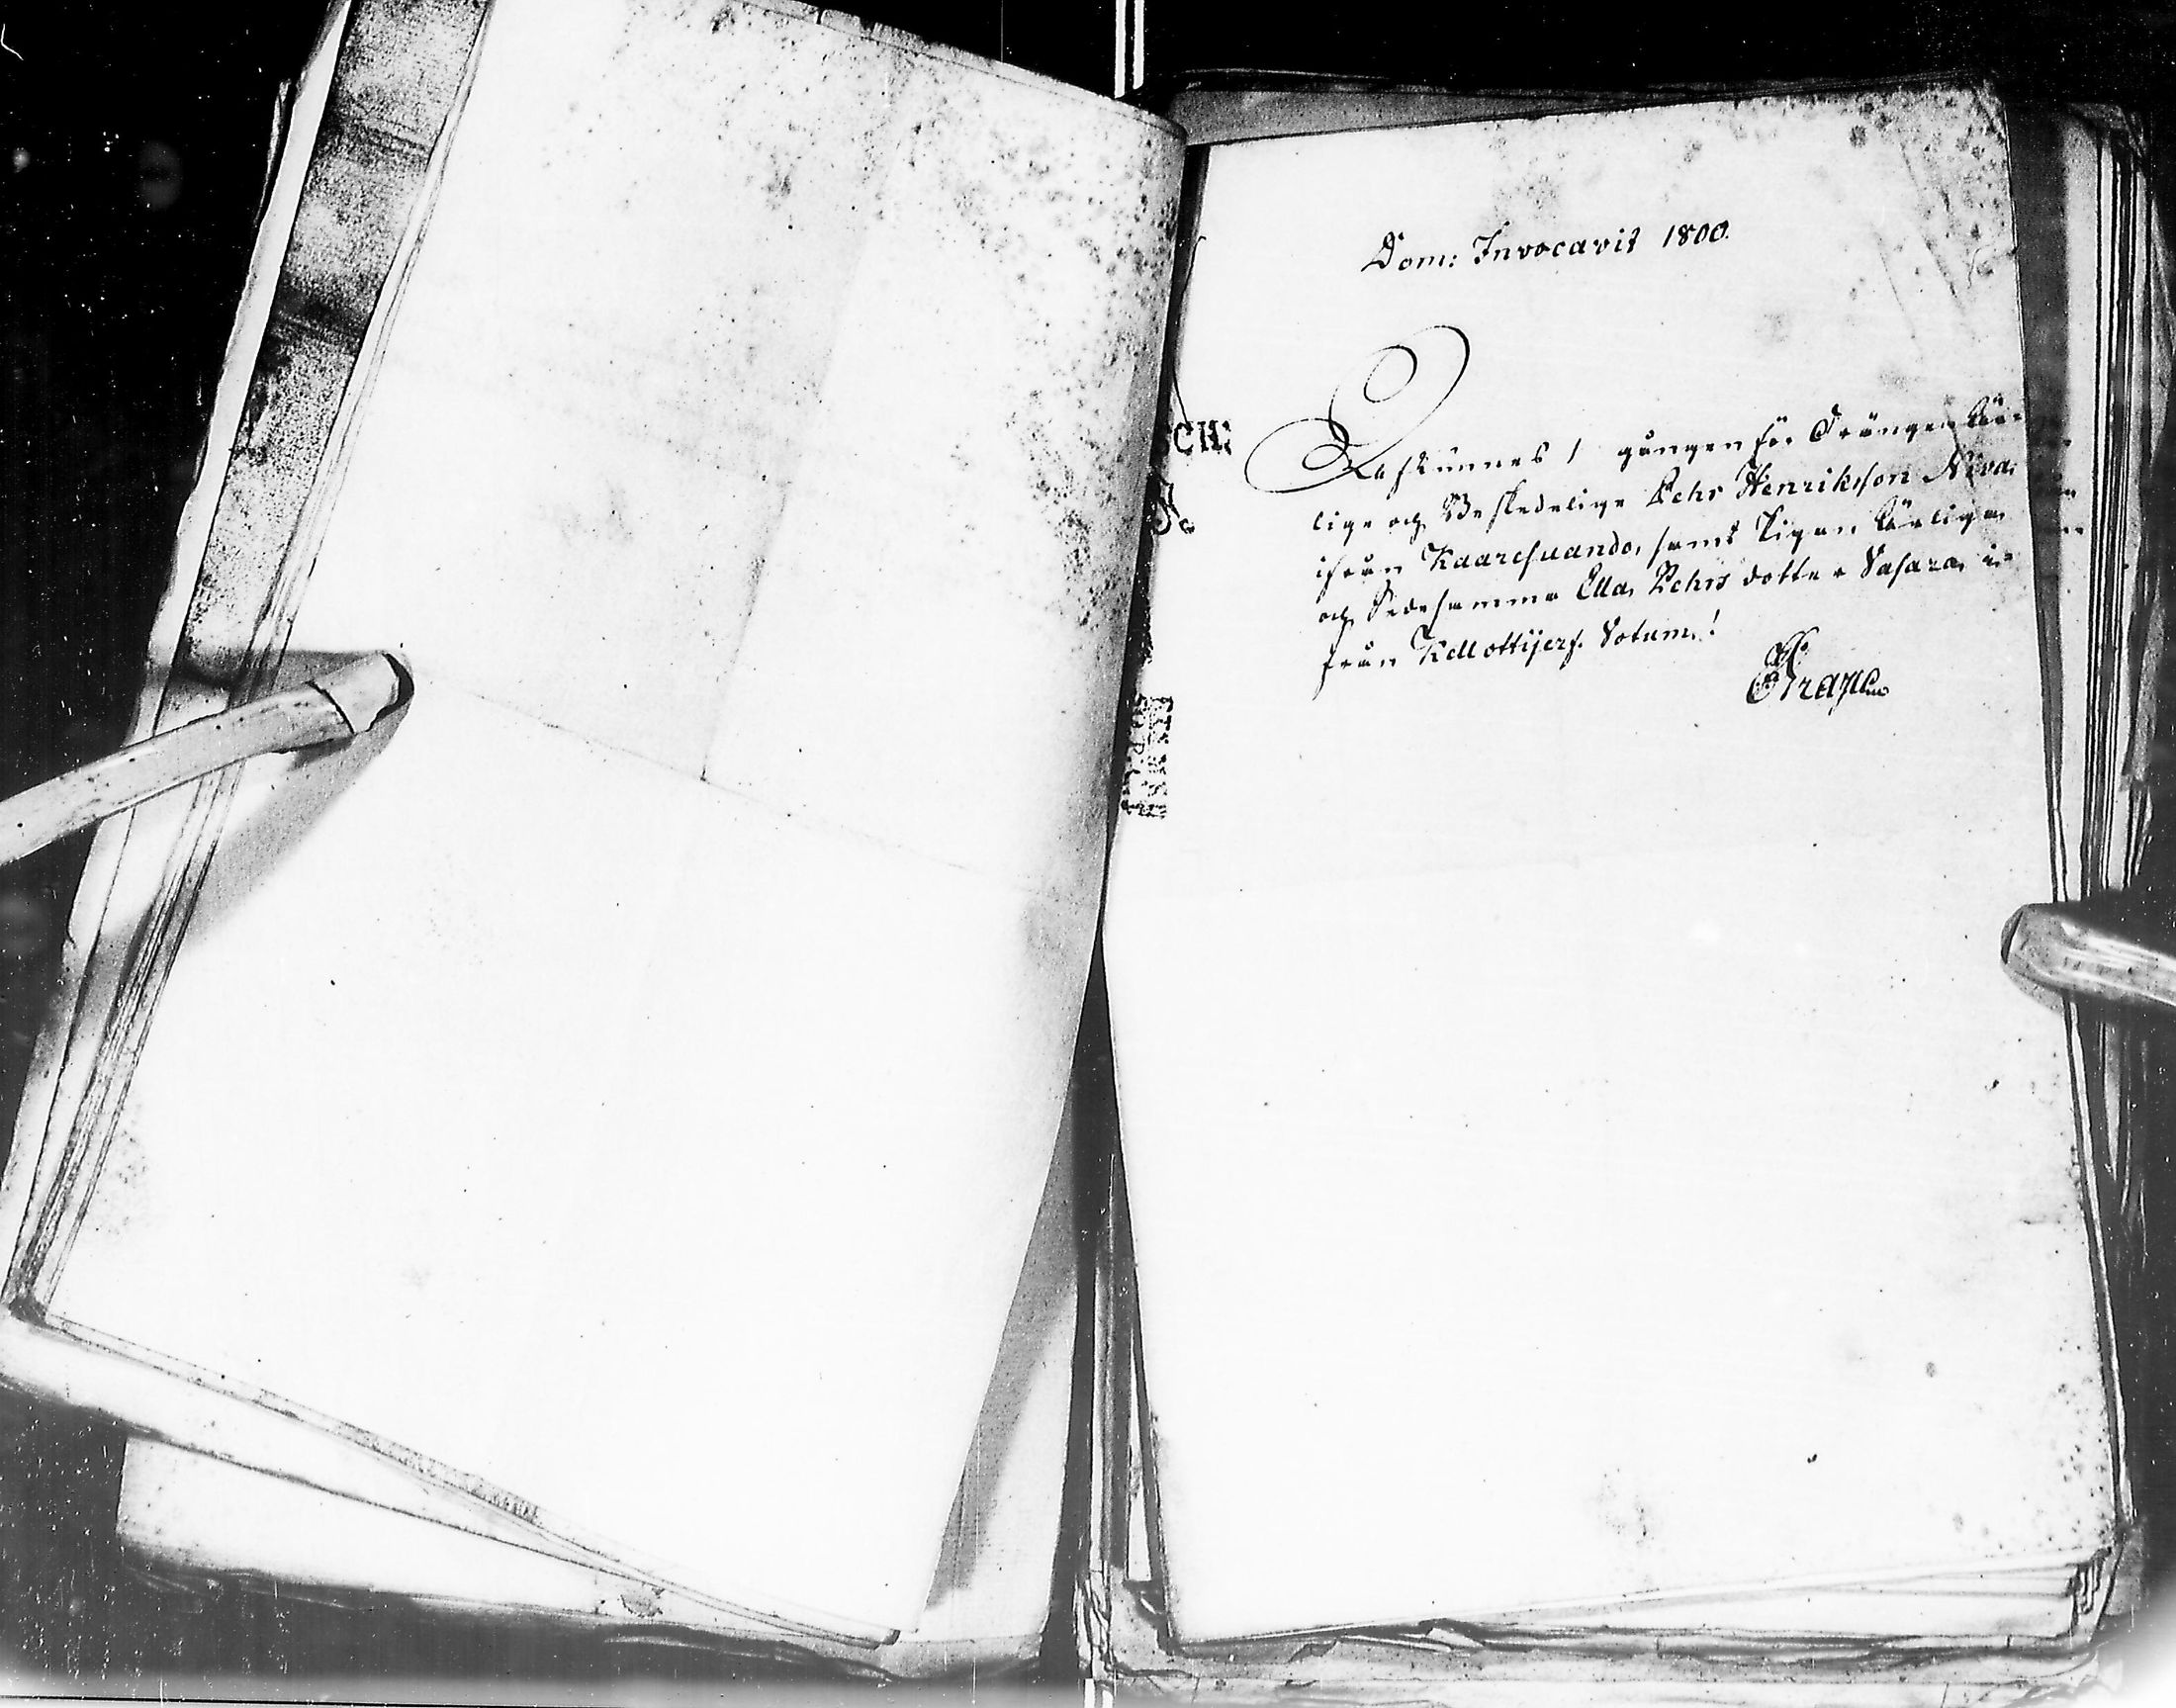 Dom: Invocavit 1800.
Afkunnes 1 gången för Drängen Är-
lige och Beskedelige Pehr Henriksson Niva
ifrån Kaaresuando, samt Pigan Ärliga
och Sedesamma Ella Pehrs dotter Vasara i-
från Kellottijerf. Votum!